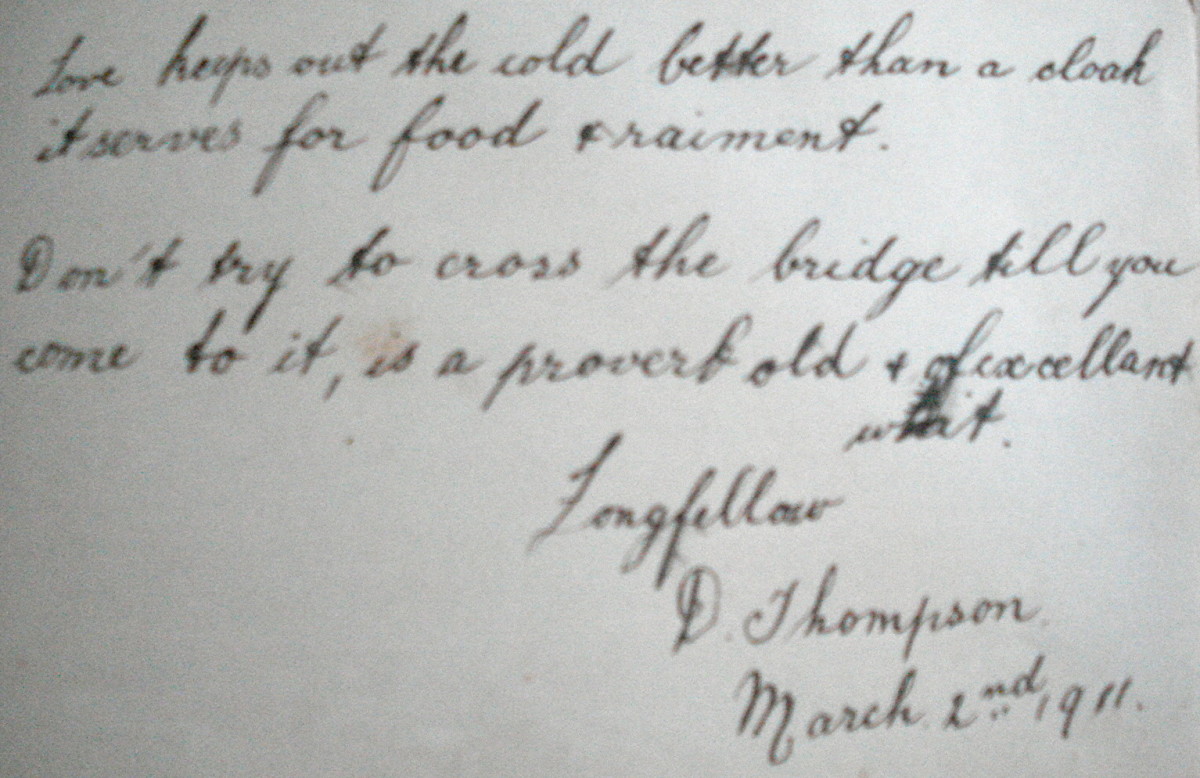 Love keeps out the cold better than a cloak
it serves for food & raiment.
Don't try to cross the bridge till you
come to it, is a proverb old & of excellant
wit.
Longfellow
D. Thompson.
March 2nd, 1911.